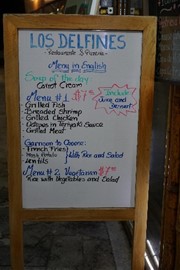 LOS DELFINES
Restaurante & Pizzeria
Menu in English
Soup of the day:
Carrot Cream
Menu # 1 $7
Include
Juice and
Dessert
- Grilled Fish
- Breaded Shrimp
- Grilled Chicken
- in Teriyaki Sauce
- Grilled Meat
Garnison to Choose:
- French Fries
- Mass Potato
- Lentils
With Rice and Salad
Menu # 2 Vegetarian $7
Rice with Vegetables and Salad